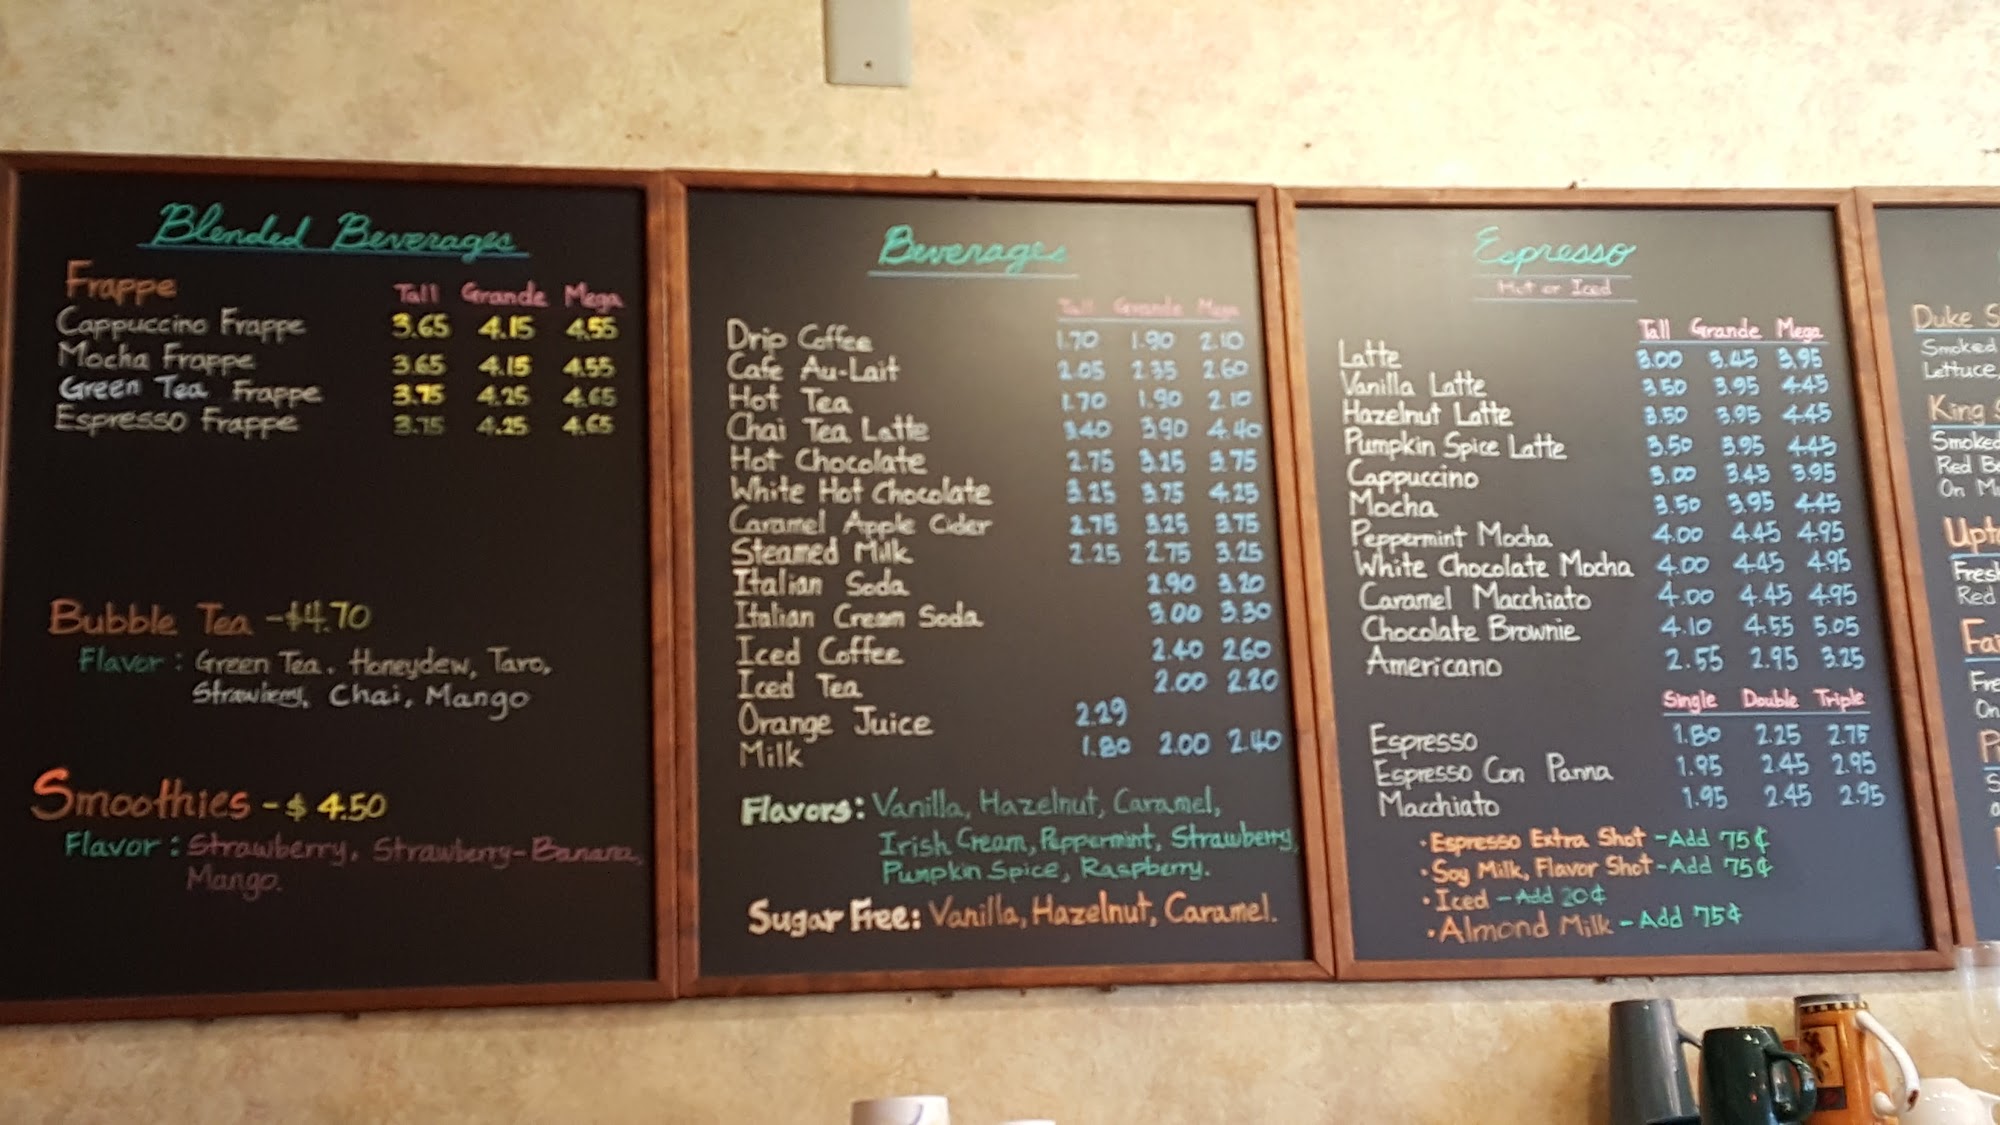 Blended Beverages
Frappe Tall Grande Mega
Cappuccino Frappe 3.65 4.15 4.55
Mocha Frappe 3.65 4.15 4.55
Green Tea Frappe 3.75 4.25 4.65
Espresso Frappe 3.75 4.25 4.65
Bubble Tea -$4.70
Flavor: Green Tea, Honeydew, Taro,
Strawberry, Chai, Mango
Smoothies -$4.50
Flavor: Strawberry, Strawberry-Banana,
Mango.
Beverages
Tall Grande Mega
Drip Coffee 1.70 1.90 2.10
Cafe Au-Lait 2.05 2.35 2.60
Hot Tea 1.70 1.90 2.10
Chai Tea Latte 3.40 3.90 4.40
Hot Chocolate 2.75 3.25 3.75
White Hot Chocolate 3.25 3.75 4.25
Caramel Apple Cider 2.75 3.25 3.75
Steamed Milk 2.25 2.75 3.25
Italian Soda 2.90 3.20
Italian Cream Soda 3.00 3.30
Iced Coffee 2.40 2.60
Iced Tea 2.00 2.20
Orange Juice 2.29
Milk 1.80 2.00 2.40
Flavors: Vanilla, Hazelnut, Caramel,
Irish Cream, Peppermint, Strawberry,
Pumpkin Spice, Raspberry.
Sugar Free: Vanilla, Hazelnut, Caramel.
Espresso
Hot or Iced
Tall Grande Mega
Latte 3.00 3.45 3.95
Vanilla Latte 3.50 3.95 4.45
Hazelnut Latte 3.50 3.95 4.45
Pumpkin Spice Latte 3.50 3.95 4.45
Cappuccino 3.00 3.45 3.95
Mocha 3.50 3.95 4.45
Peppermint Mocha 4.00 4.45 4.95
White Chocolate Mocha 4.00 4.45 4.95
Caramel Macchiato 4.00 4.45 4.95
Chocolate Brownie 4.10 4.55 5.05
Americano 2.55 2.95 3.25
Single Double Triple
Espresso 1.80 2.25 2.75
Espresso Con Panna 1.95 2.45 2.95
Macchiato 1.95 2.45 2.95
• Espresso Extra Shot -Add 75¢
• Soy Milk, Flavor Shot -Add 75¢
• Iced -Add 20¢
• Almond Milk - Add 75¢
Duke S
Smoked
Lettuce,
King S
Smoked
Red Be
On Mu
Upto
Fresh
Red
Fai
Fre
On